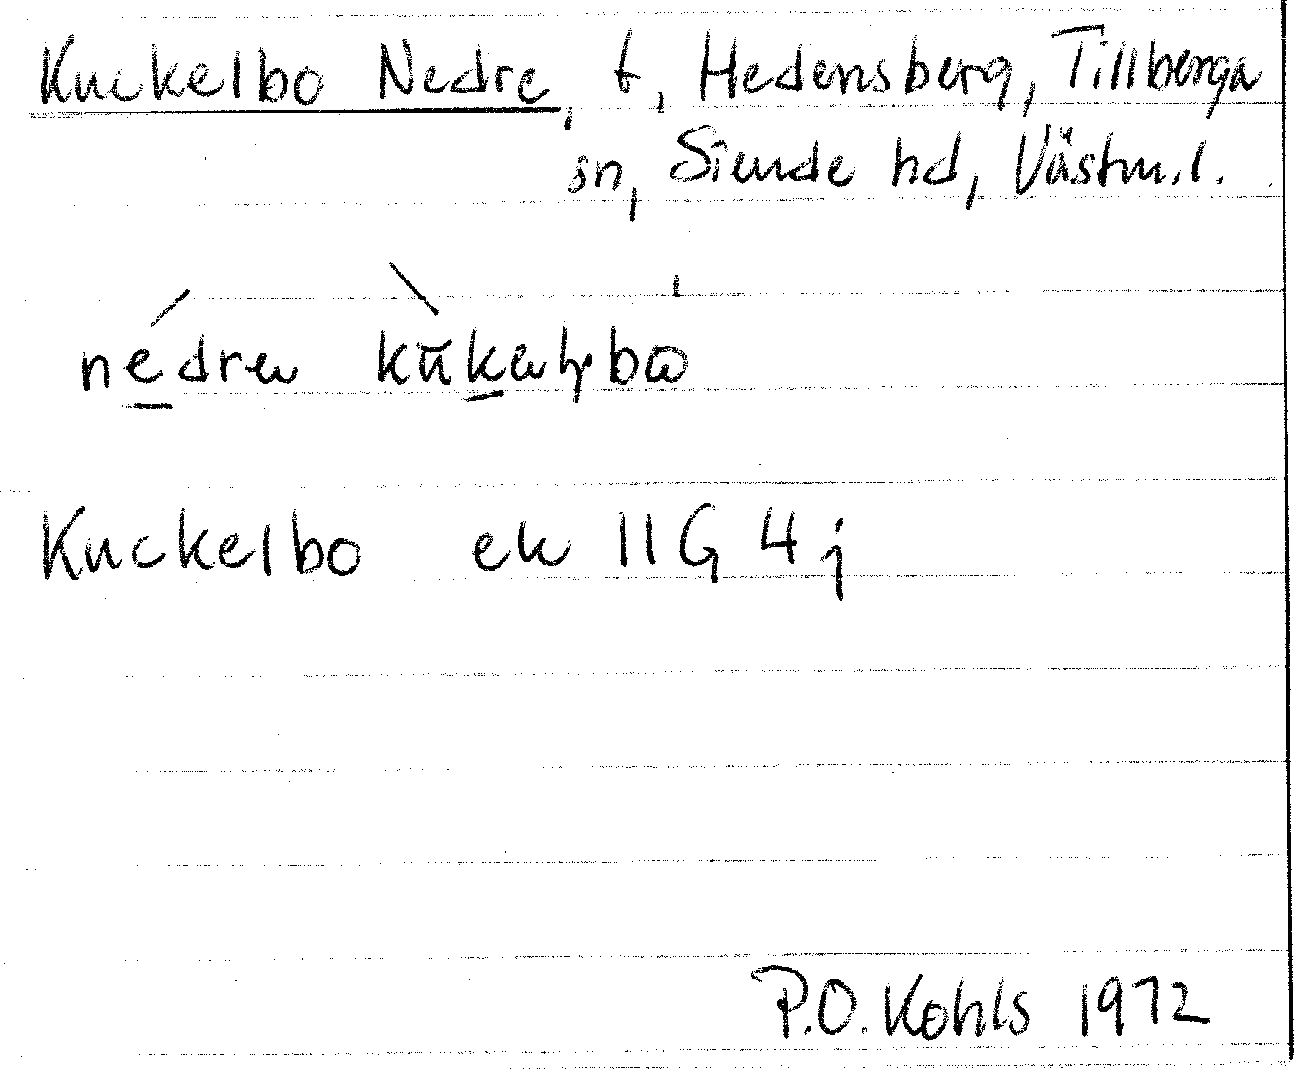 Kuckelbo Nedre, t, Hedensberg, Tillberga
sn, Siende hd, Västm.l.
Kuckelbo ek 11G 4j
P.O. Kohls 1972